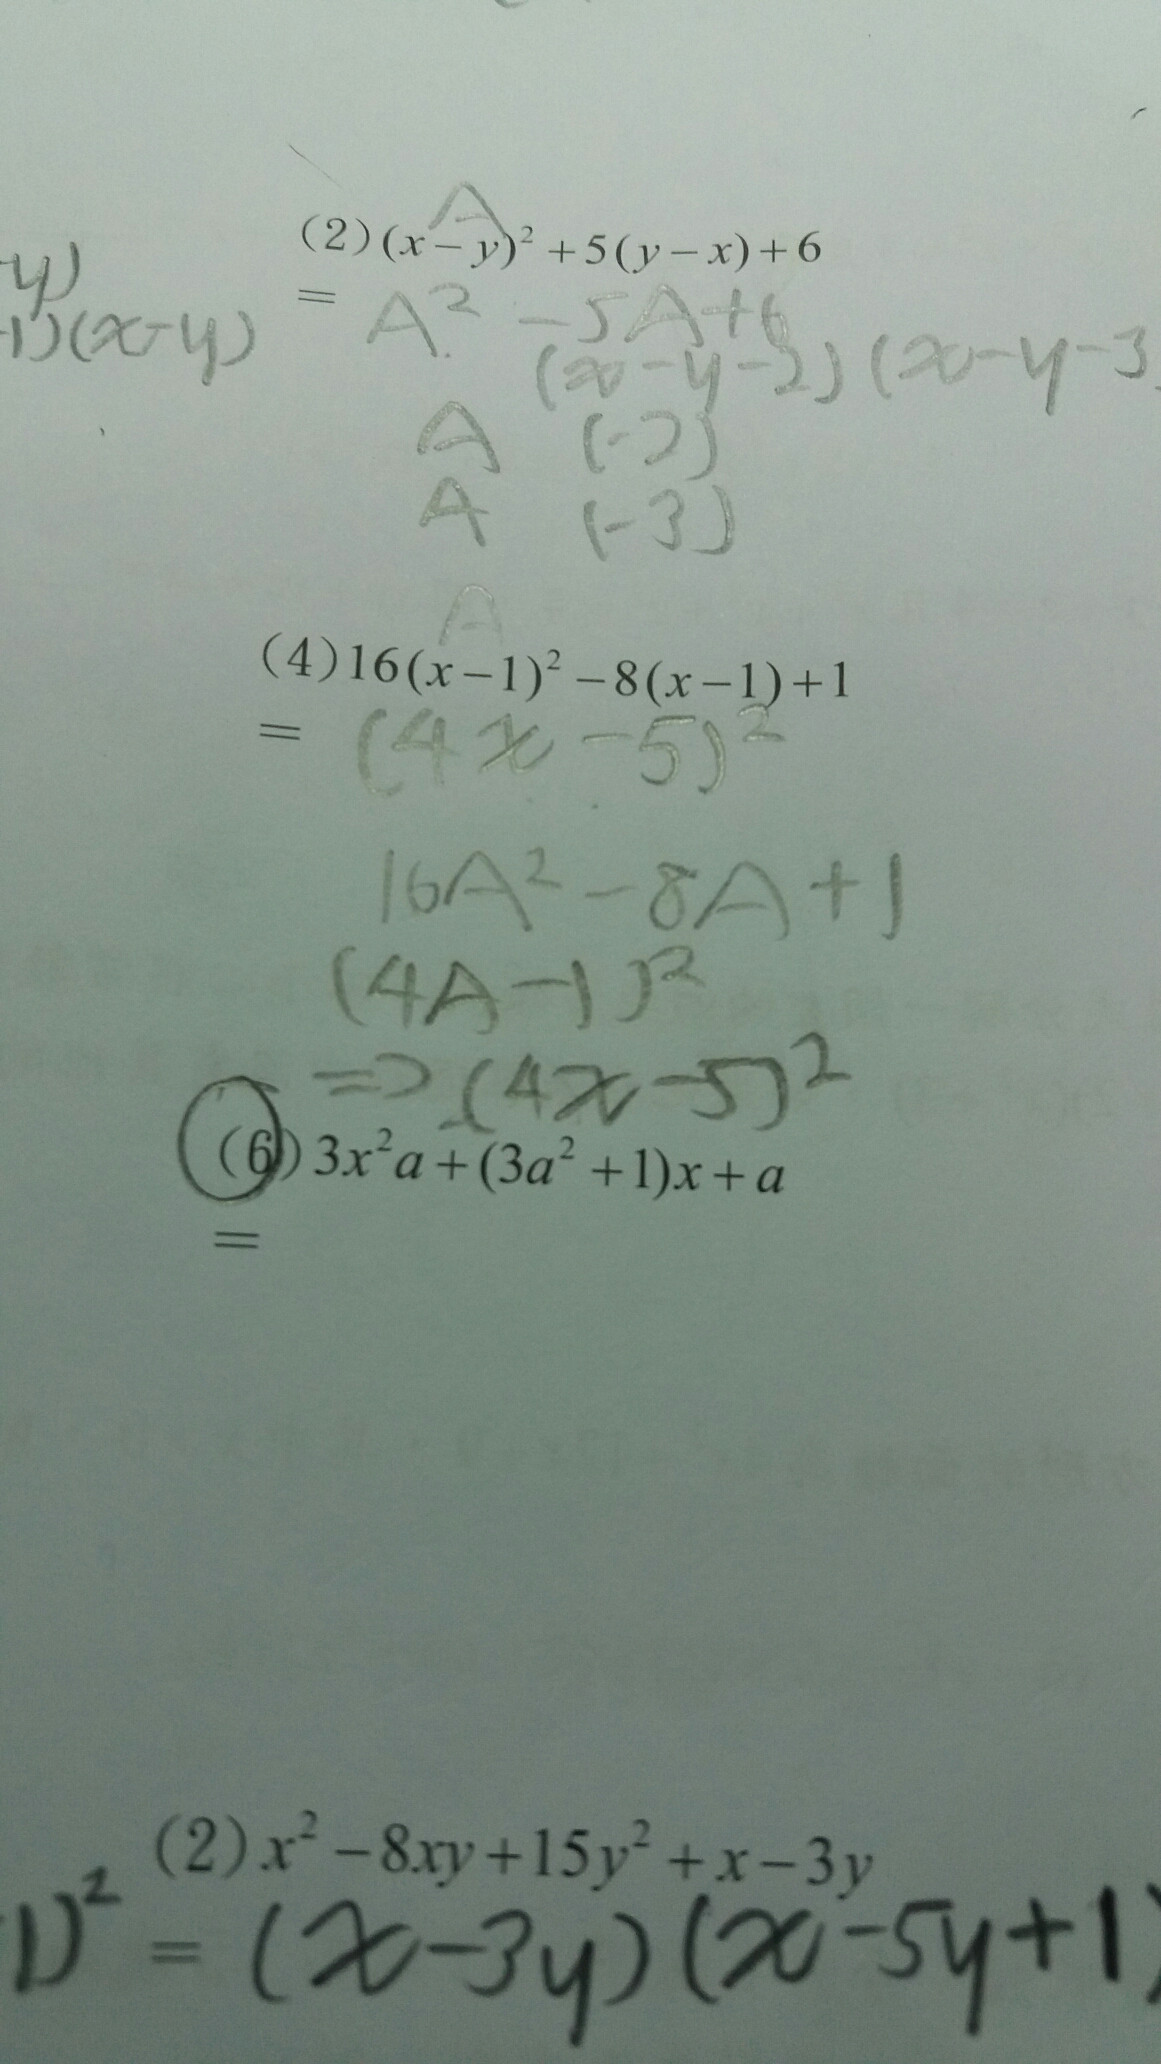 A
(2)(x-y)²+5(y-x)+6
y)
= A²-5A+6
1)(x-y)
(x-y-2)(x-y-3
A (-2)
A (-3)
A
(4)16(x-1)²-8(x-1)+1
= (4x-5)²
16A²-8A+1
(4A-1)²
=>(4x-5)²
(6)3x²a+(3a²+1)x+a
=
(2)x²-8xy+15y²+x-3y
1)² = (x-3y)(x-5y+1)